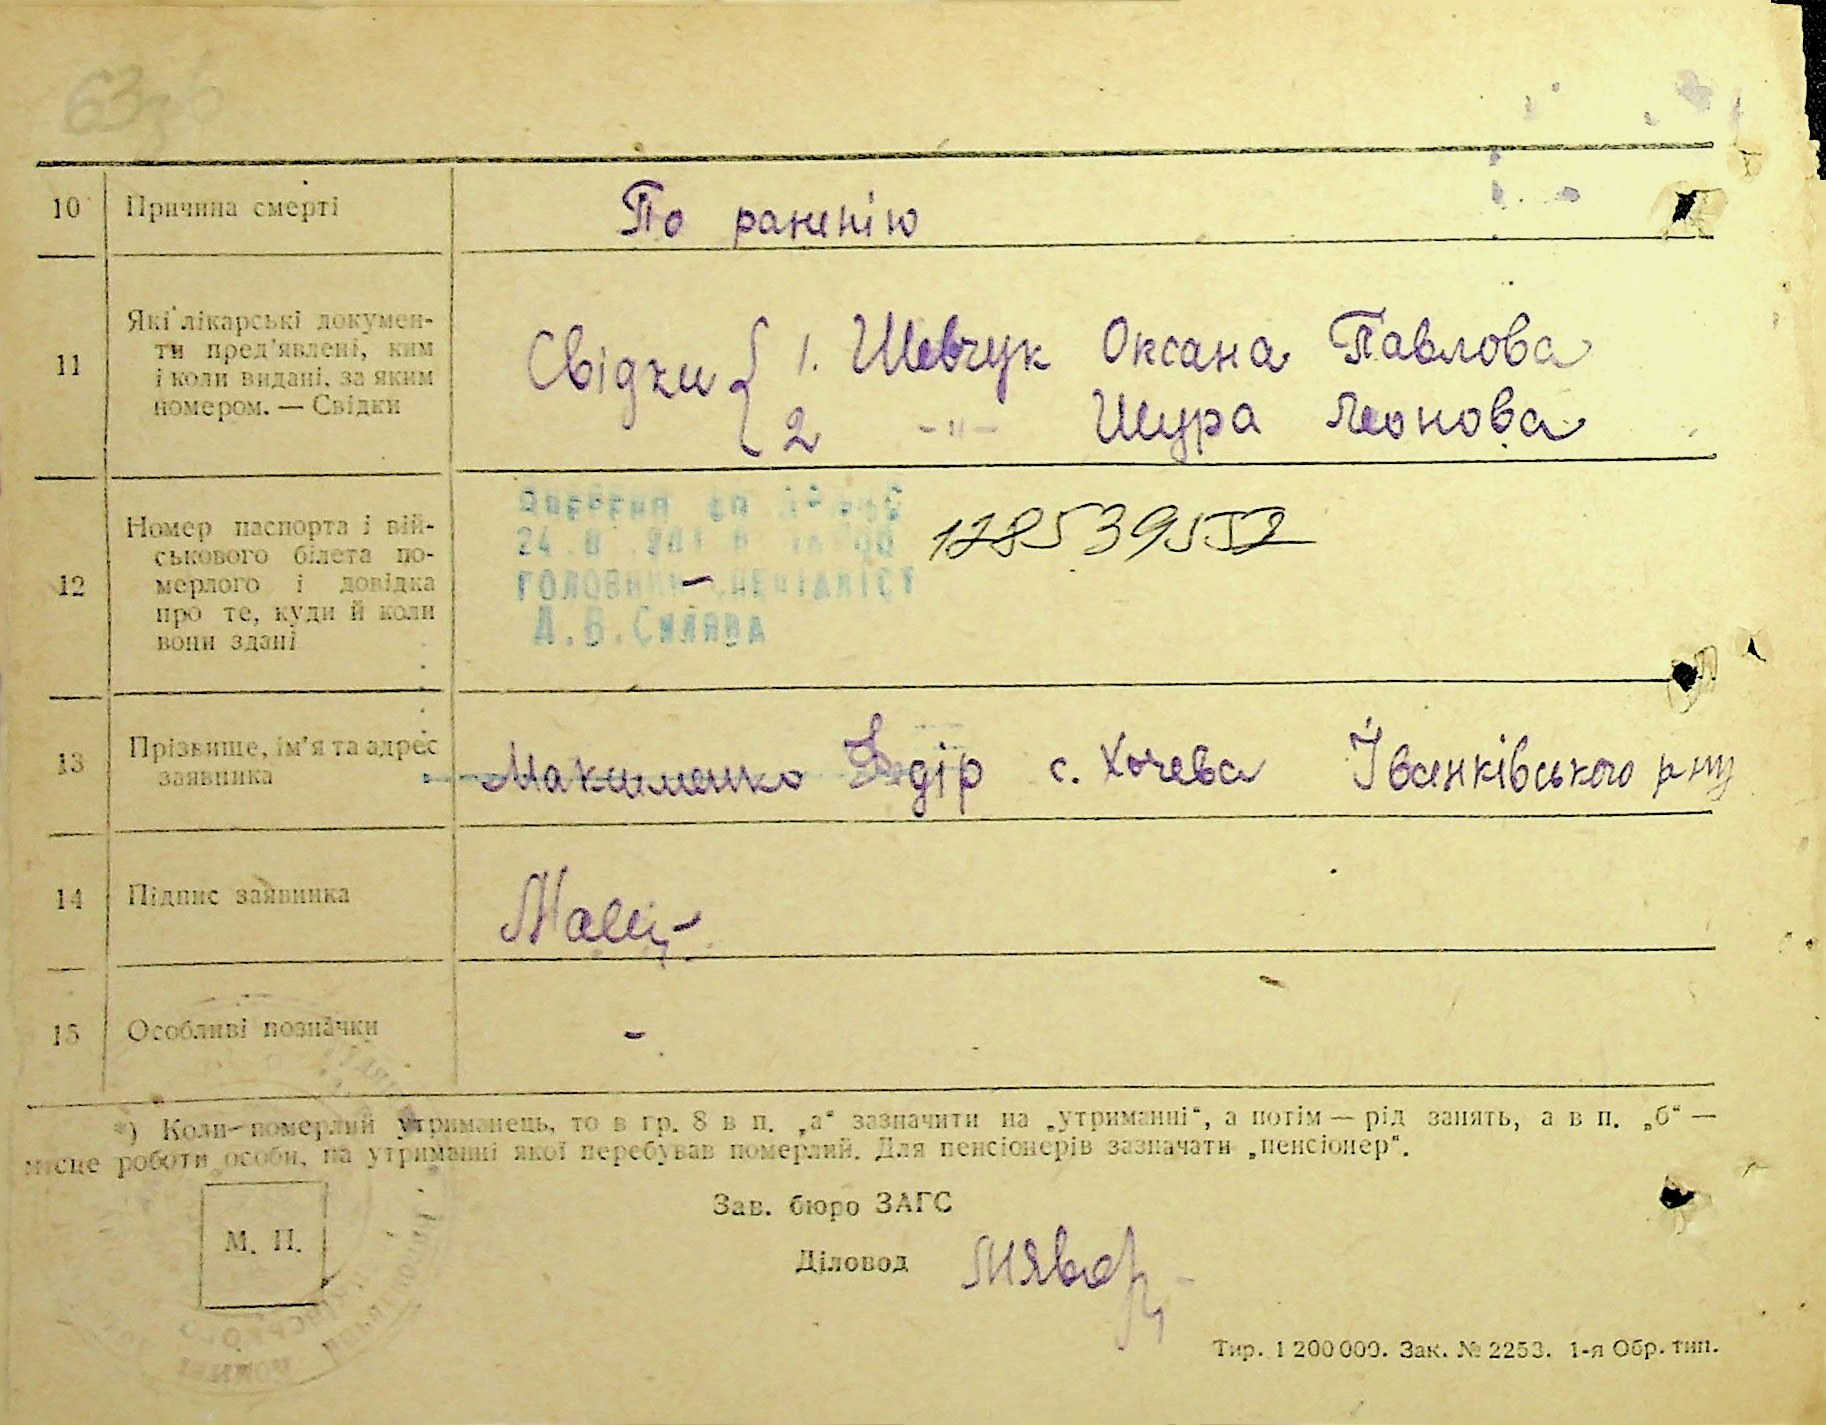 10 Причина смерті По раненію
11 Які лікарські докумен-
ти пред'явлені, ким
і коли видані, за яким
номером. — Свідки
Свідки { 1. Шевчук Оксана Павлова
2 -"- Шура Леонова
12 Номер паспорта і вій-
ськового білета по-
мерлого і довідка
про те, куди й коли
вони здані
24.
128539552
ГОЛОВНИЙ СПЕЦІАЛІСТ
А.В.Силява
13 Прізвище, ім'я та адрес
заявника
Максименко Хведір с. Хочева Іванківського р-ну
14 Підпис заявника
15 Особливі позначки -
*) Коли померлий утриманець, то в гр. 8 в п. „а“ зазначити на „утриманні“, а потім — рід занять, а в п. „б“ —
місце роботи особи, на утриманні якої перебував померлий. Для пенсіонерів зазначати „пенсіонер“.
Зав. бюро ЗАГС
М. П.
Діловод
Тир. 1 200 000. Зак. № 2253. 1-я Обр. тип.